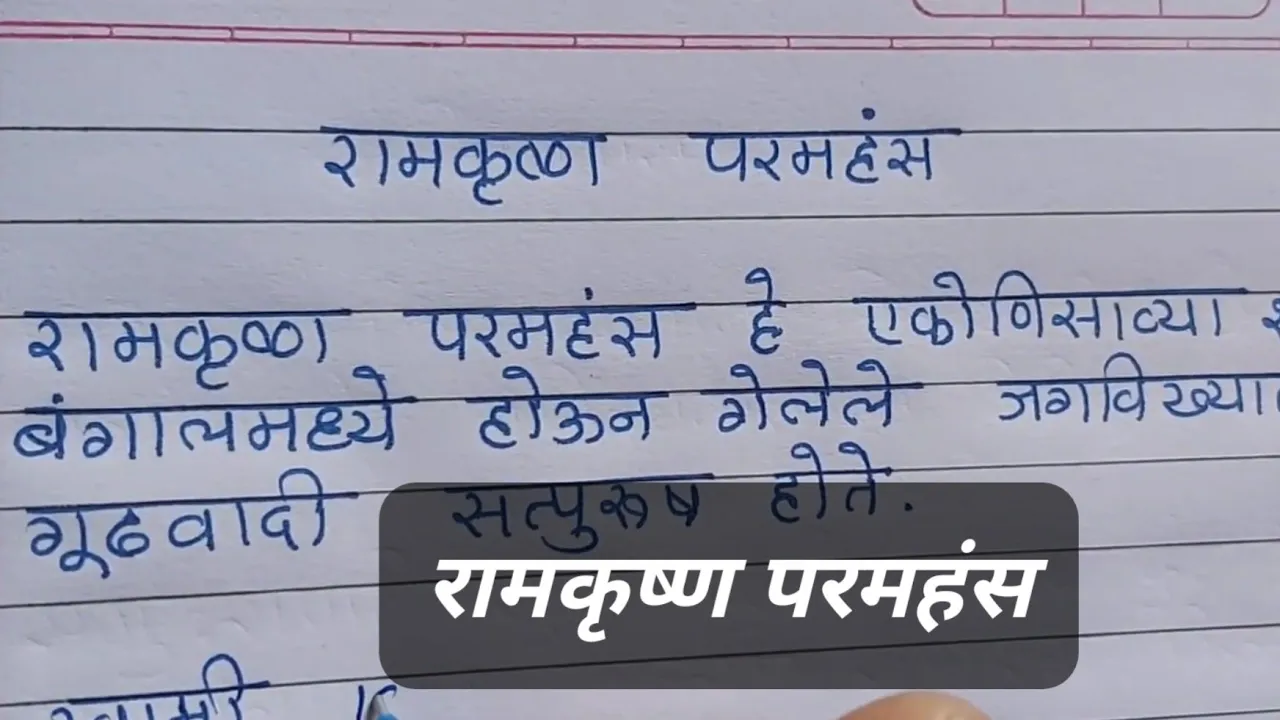 रामकृष्ण परमहंस
रामकृष्ण परमहंस हे एकोणिसाव्या
बंगालमध्ये होऊन गेलेले जगविख्या
गूढवादी सत्पुरुष होते.
रामकृष्ण परमहंस
स्वामी